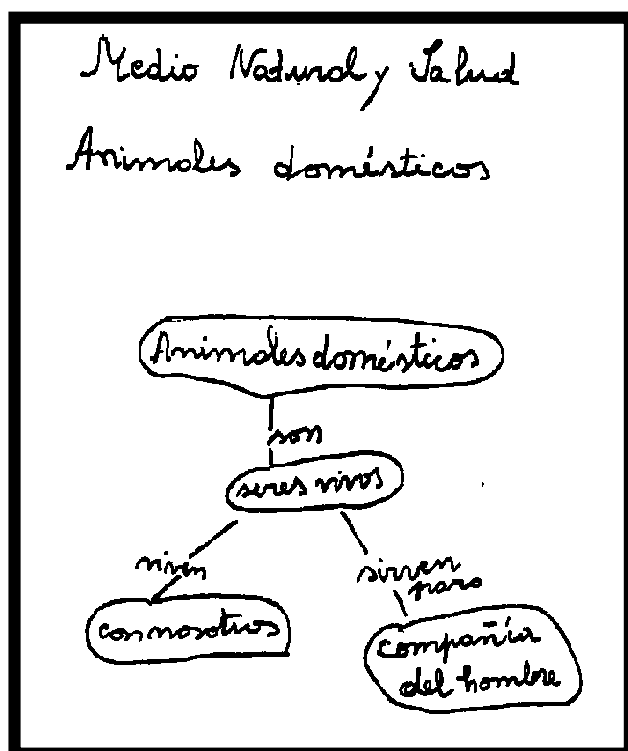 Medio Natural y Salud
Animales domésticos
Animales domésticos
son
seres vivos
viven
sirven
para
con nosotros
compañía
del hombre